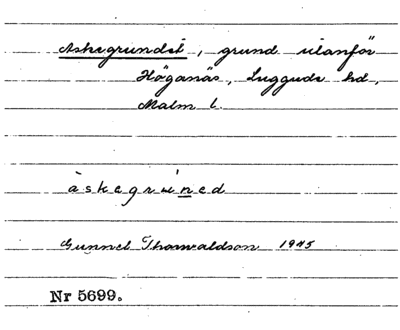 Askegrundet, grund utanför
Höganäs, Luggude hd,
Malm l.
àskegruǹed
Gunnel Thorwaldson 1945
Nr 5699.